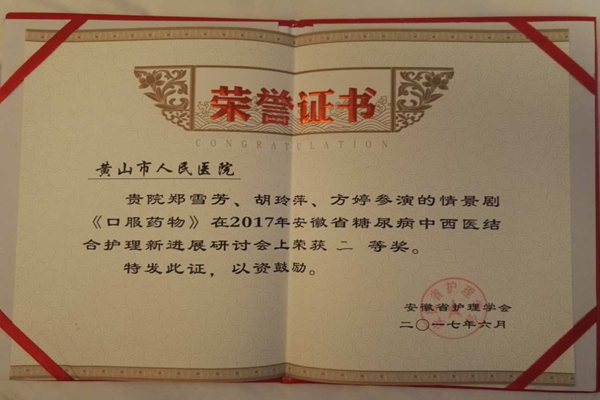 荣誉证书
CONGRATULATION
黄山市人民医院
贵院郑雪芳、胡玲萍、方婷参演的情景剧
《口服药物》在2017年安徽省糖尿病中西医结
合护理新进展研讨会上荣获 二 等奖。
特发此证，以资鼓励。
安徽省护理学会
二〇一七年六月